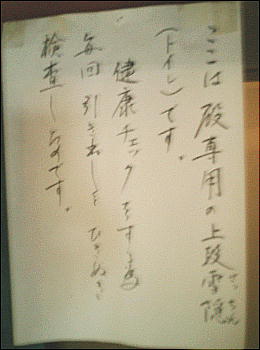 ここは殿専用の上段雪隠
せっちん
(トイレ)です。
健康チェックをする為
毎回引き出しをひきぬき
検査したのです。